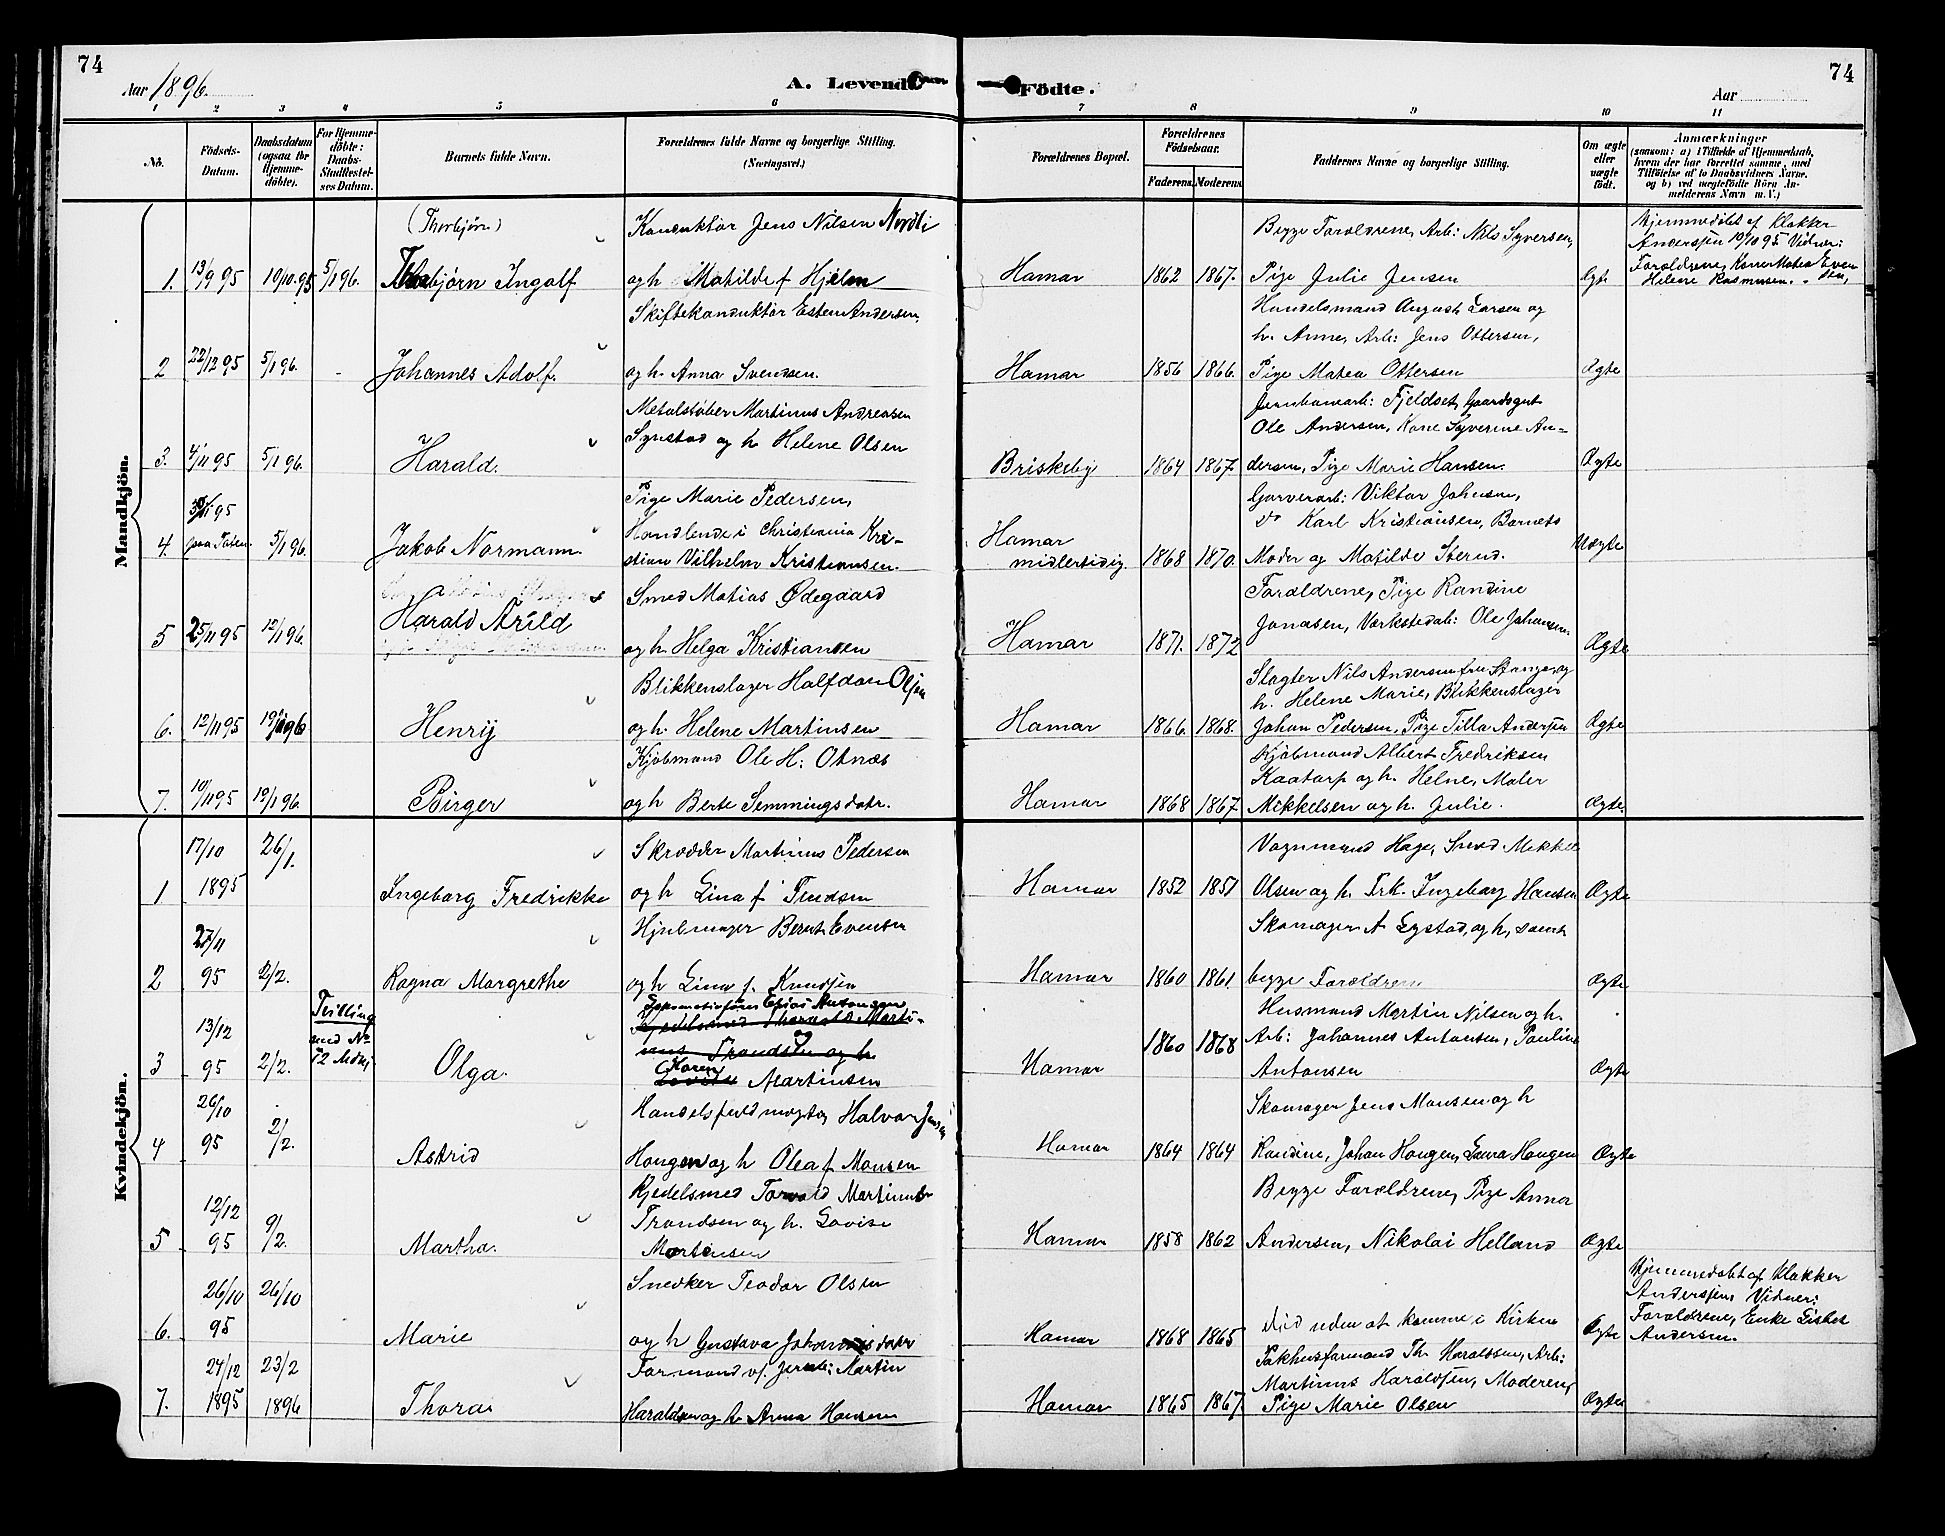 74
Aar 1896.
A. Levende
Födte.
74
Aar
1 2 3 4 5 6 7 8 9 10 11
No.
Födsels-Datum.
Daabsdatum (ogsaa for Hjemme-döbte).
For Hjemme-döbte: Daabs-Stadfæstel-ses Datum.
Barnets fulde Navn.
Forældrenes fulde Navne og borgerlige Stilling. (Næringsvei.)
Forældrenes Bopæl.
Forældrenes Födselsaar.
Faderens. Moderens.
Faddernes Navne og borgerlige Stilling.
Om ægte eller uægte födt.
Anmærkninger
(saasom: a) i Tilfælde af Hjemmedaab, hvem der har forrettet samme, med Tilföielse af to Daabsvidners Navne, og b) ved uægtefödte Börn An-melderens Navn m. V.)
Mandkjön.
(Thorbjørn)
Konduktør Jens Nilsen Nordli
Begge Forældrene, Arb: Nils Syversen,
Hjemmedøbt af Klokker
Anderssen 10/10 95 Vidner:
1. 13/9 95 10/10.95 5/1 96. Thorbjörn Ingolf og h Matilde f Hjelm Hamar 1862 1867. Pige Julie Jensen Ægte
Forældrene, Kone Matea Even
sen, Helene Rasmussen.
Skiftekonduktør Esten Andersen
Handelsmand August Larsen og
h. Anne, Arb: Jens Ottersen,
2 22/12 95 5/1 96. - Johannes Adolf. og h. Anna Svendsen. Hamar 1856 1866. Pige Matea Ottersen Ægte
Metalstøber Martinus Andreasen
Jernbanearb: Fjeldset, Gaardsgut
Synstad og h Helene Olsen
Ole Andersen, Kone Syverine An-
3. 4/11 95 5/1 96. Harald. Briskeby 1864 1867 dersen, Pige Marie Hansen. Ægte
Pige Marie Pedersen,
Garverarb: Viktor Johnsen,
Handlende i Christiania Kri-
Do Karl Kristiansen, Barnets
4. 95 paa Toten 5/1 96. Jakob Normann. stian Vilhelm Kristiansen. Hamar midlertidig. 1868 1870. Moder og Matilde Sterud. Uægte
Smed Matias Ødegaard
Forældrene, Pige Randine
Jonasen, Værkstedarb: Ole Johansen.
5 25/11 95 12/1 96. Harald Arild og h. Helga Kristiansen Hamar 1871. 1872 Ægte
Blikkenslager Halfdan Olsen
Slagter Nils Andersen fra Stange og
h. Helene Marie, Blikkenslager
6. 12/11 95 19/1 96 Henrij og h. Helene Martinsen Hamar 1866. 1868. Johan Pedersen, Pige Tilla Andersen Ægte
Kjøbmand Ole H: Otnæs
Kjøbmand Albert Fredriksen
Kaatorp og h. Helne, Maler
7. 10/11 95 19/1 96. Birger og h Berte Semmingsdatr. Hamar 1868 1867 Mikkelsen og h. Julie. Ægte.
Kvindekjön.
17/10 26/1.
Skrædder Martinus Pedersen
Vognmand Hage, Smed Mikkel
1 1895 Ingeborg Fredrikke og h Lina f Hamar 1852 1851 Olsen og h. Frk. Ingeborg Hansen Ægte
27/11
Hjulmager Bernt Evensen
Skomager A Lystad, og h, samt
2 95 2/2. Ragna Margrethe og h Lina f. Knudsen Hamar 1860 1861. begge Forældrene Ægte
Tvilling med No 72 Mdkj.
Husmand Martin Nilsen og h.
13/12 1860 1868 Arb: Johannes Antonsen, Pauline
3 95 2/2. Olga. Karen Martinsen Hamar Antonsen Ægte
26/10
Handelsfuldmægtig Halvor Jensen
Skomager Jens Monsen og h
4 95 2/2. Astrid Hougen og h Olea f Monsen Hamar 1864 1864 Randine, Johan Hougen, Laura Hougen Ægte
Kjedelsmed Torvald Martinus
Begge Forældrene, Pige Anna
12/12
Trondsen og h. Lovise
5 95 9/2. Martha. Martinsen Hamar 1858 1862 Andersen, Nikolai Helland Ægte
26/10 26/10
Snedker Teodor Olsen
Hjemmedøbt af Klokker
Anderssen, Vidner:
6. 95 Marie og h Gustava Johannisdatr Hamar 1868 1865 død uden at komme i Kirken Ægte
Forældrene, Enke Lisbet
Andersen.
24/12 23/2
Formand v/ Jernb: Martin
Pakhusformand Th. Haraldsen, Arb:
Martinus Haraldsen, Moderen,
7. 1895 1896 Thora Haraldsen og h Anna Hansen Hamar 1865 1867 Pige Marie Olsen Ægte